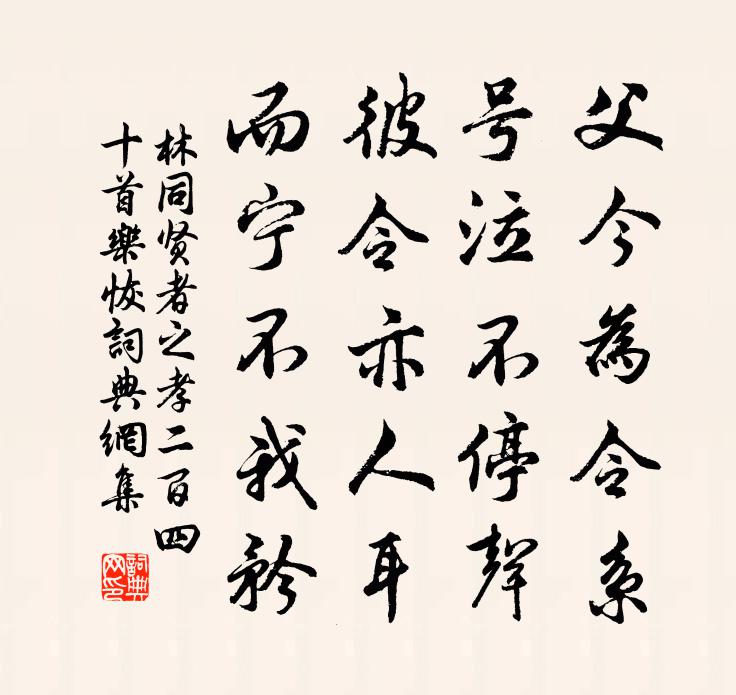 父今為令系
号泣不停聲
彼令亦人耳
而宁不我矜
林同贤者之孝二百四
十首樂恢詞典網集
詞典
网印